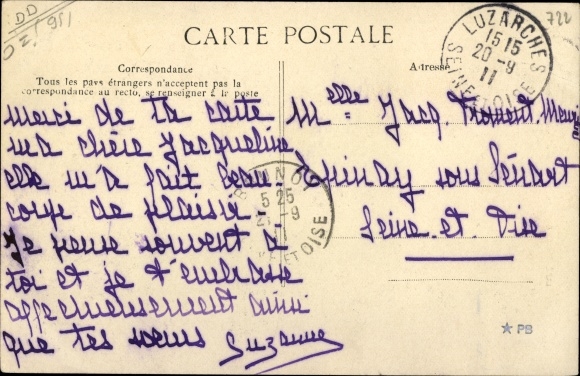 DD
951
722
CARTE POSTALE
Correspondance
Tous les pays étrangers n'acceptent pas la
correspondance au recto, se renseigner à la poste
Adresse
LUZARCHES
15 15
20 - 9
11
SEINE ET OISE
merci de ta carte
ma chère Jacqueline
elle m'a fait beau-
coup de plaisir.
Je pense souvent à
toi et je t'embrasse
affectueusement ainsi
que tes soeurs Suzanne
Melle Jacq. Fromont
Epinay sous Sénart
Seine et Oise
5 25
9
ET OISE
★ PB